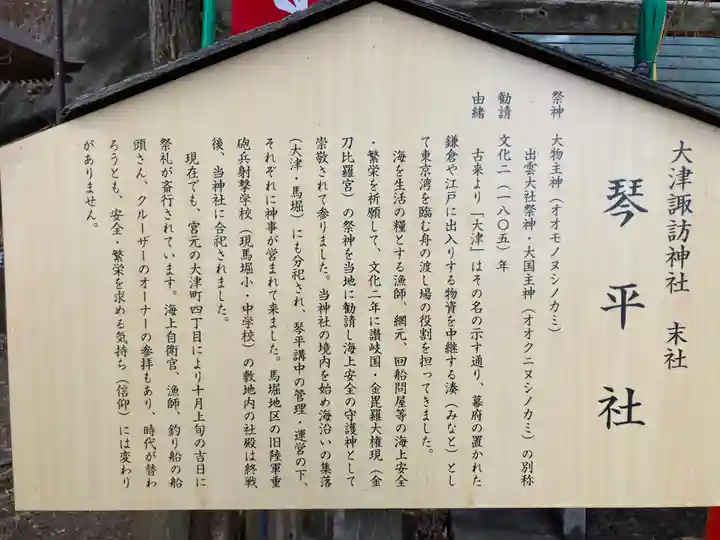 大津諏訪神社 末社
琴平社
祭神 大物主神(オオモノヌシノカミ)
出雲大社祭神・大国主神(オオクニヌシノカミ)の別称
勧請 文化二(一八〇五)年
由緒 古来より「大津」はその名の示す通り、幕府の置かれた
鎌倉や江戸に出入りする物資を中継する湊(みなと)とし
て東京湾を臨む舟の渡し場の役割を担ってきました。
海を生活の糧とする漁師、網元、回船問屋等の海上安全
・繁栄を祈願して、文化二年に讃岐国・金毘羅大権現(金
刀比羅宮)の祭神を当地に勧請し海上安全の守護神として
崇敬されて参りました。当神社の境内を始め海沿いの集落
(大津・馬堀)にも分祀され、琴平講中の管理・運営の下、
それぞれに神事が営まれて来ました。馬堀地区の旧陸軍重
砲兵射撃学校(現馬堀小・中学校)の敷地内の社殿は終戦
後、当神社に合祀されました。
現在でも、宮元の大津町四丁目により十月上旬の吉日に
祭礼が斎行されています。海上自衛官、漁師、釣り船の船
頭さん、クルーザーのオーナーの参拝もあり、時代が替わ
ろうとも、安全・繁栄を求める気持ち(信仰)には変わり
がありません。